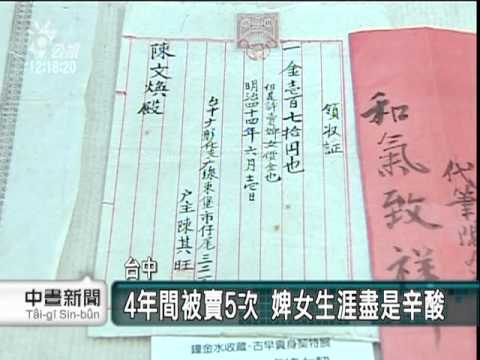 公視
12:18:20
領收証
一金壱百七拾円也
但是許賣婢女價金也
明治四十四年六月十壱日
戶主陳其旺
陳文煥殿
和氣致祥
代筆陳
台中
中晝新聞
Tâi-gí Sin-bûn
4年間被賣5次 婢女生涯盡是辛酸
鐘金水收藏‧古早賣身契特展